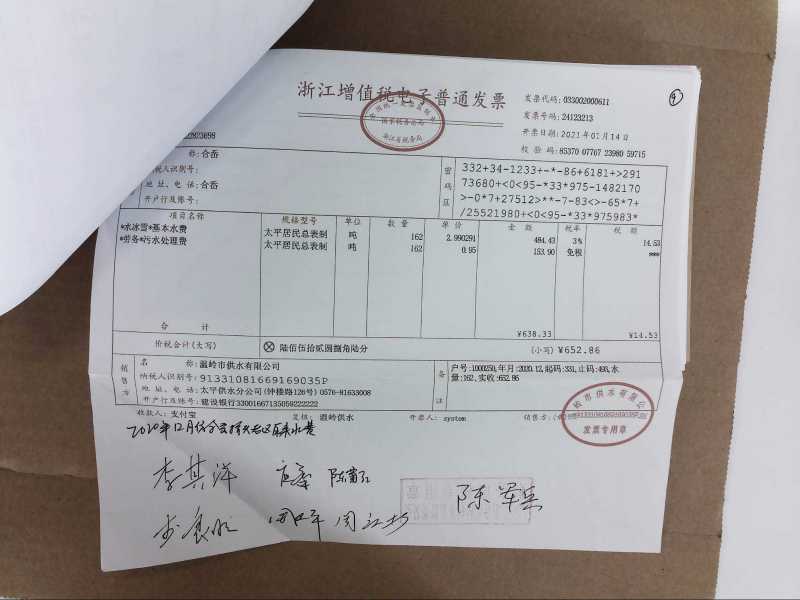 浙江增值税电子普通发票
发票代码: 033002000611
发票号码: 24123213
开票日期: 2021年01月14日
校验码: 85370 07767 23980 59715
④
国家税务总局
浙江省税务局
称: 合岙
税人识别号:
地址、电话: 合岙
开户行及账号:
密码区
332+34-1233+-*-86+6181+>291
73680+<0<95-*33*975-1482170
>-0*7+27512>**-7-83<>-65*7+
/25521980+<0<95-*33*975983*
项目名称 规格型号 单位 数量 单价 金额 税率 税额
*水冰雪*基本水费 太平居民总表制 吨 162 2.990291 484.43 3% 14.53
*劳务*污水处理费 太平居民总表制 吨 162 0.95 153.90 免税 ***
合计 ¥638.33 ¥14.53
价税合计(大写) ⊗ 陆佰伍拾贰圆捌角陆分 (小写) ¥652.86
销售方
名称: 温岭市供水有限公司
纳税人识别号: 91331081669169035P
地址、电话: 太平供水分公司(钟楼路126号) 0576-81633008
开户行及账号: 建设银行33001667135059222222
备注
户号:1000250,年月:2020.12,起码:331,止码:493,水
量:162,实收:652.86
收款人: 支付宝 复核: 温岭供水 开票人: system 销售方:
市供水有限公
91331081669169035P
发票专用章
李其洋
陈军